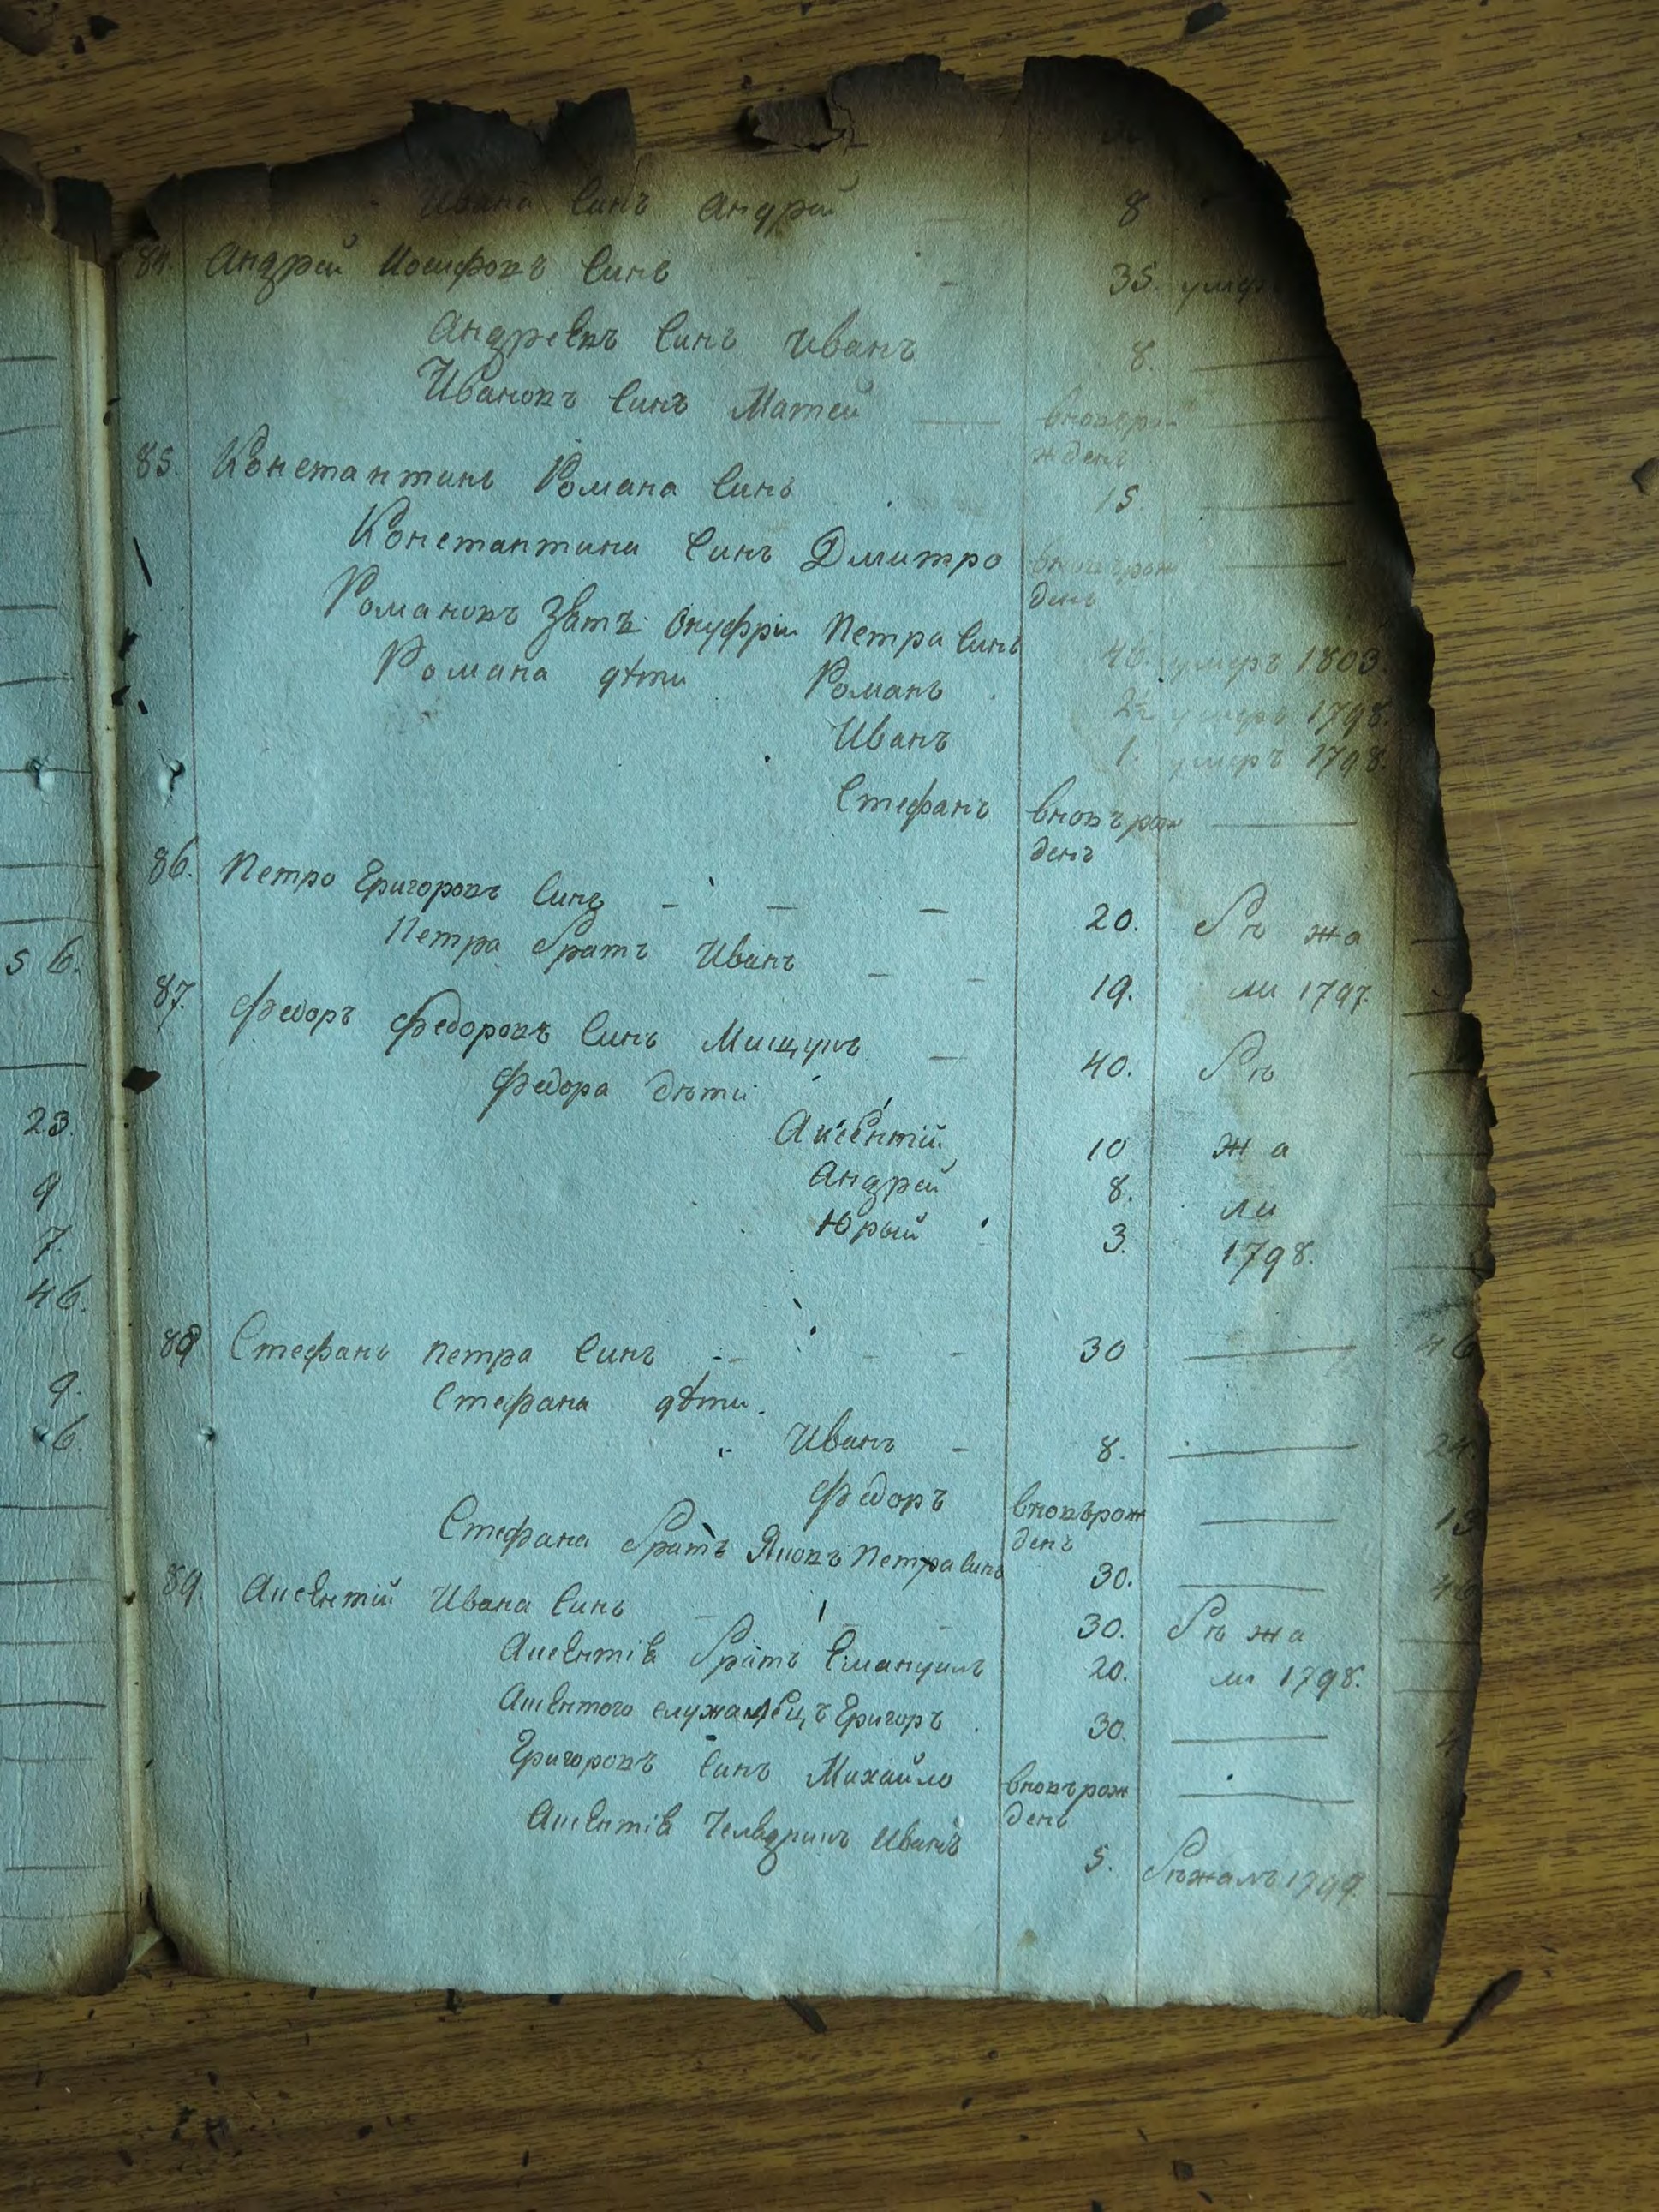 Ивана Синъ Андрей 8
84. Андрей Иосифовъ Синъ 35. умер
Андреевъ Синъ Иванъ 8.
Ивановъ Синъ Матей вновьро
жденъ
85. Константинъ Романа Синъ 15.
Константина Синъ Дмитро вновърож
денъ
Романовъ Зять Онуфрій Петра Синъ 46. умеръ 1803.
Романа дѣти Романъ 2½ умеръ 1798.
Иванъ 1. умеръ 1798.
Стефанъ вновъ рож
денъ
86. Петро Григоровъ Синъ 20. бѣ жа
Петра братъ Иванъ 19. ли 1797.
87. Федоръ Федоровъ Синъ Мищукъ 40. бѣ
Федора дѣти
Аксентій 10 жа
Андрей 8. ли
Юрый 3. 1798.
88 Стефанъ Петра Синъ 30 46
Стефана дѣти.
Иванъ 8. 24.
Федоръ вновърож
денъ
Стефана братъ Яковъ Петра Синъ 30.
89. Аксентій Ивана Синъ 30. бѣ жа
Аксентіевъ братъ Емануилъ 20. ли 1798.
Аксентого Григоръ 30.
Григоровъ Синъ Михайло вновърож
денъ
Аксентіевъ Иванъ 5. бѣжалъ 1799.
5 6.
23.
9
7.
46.
9.
6.